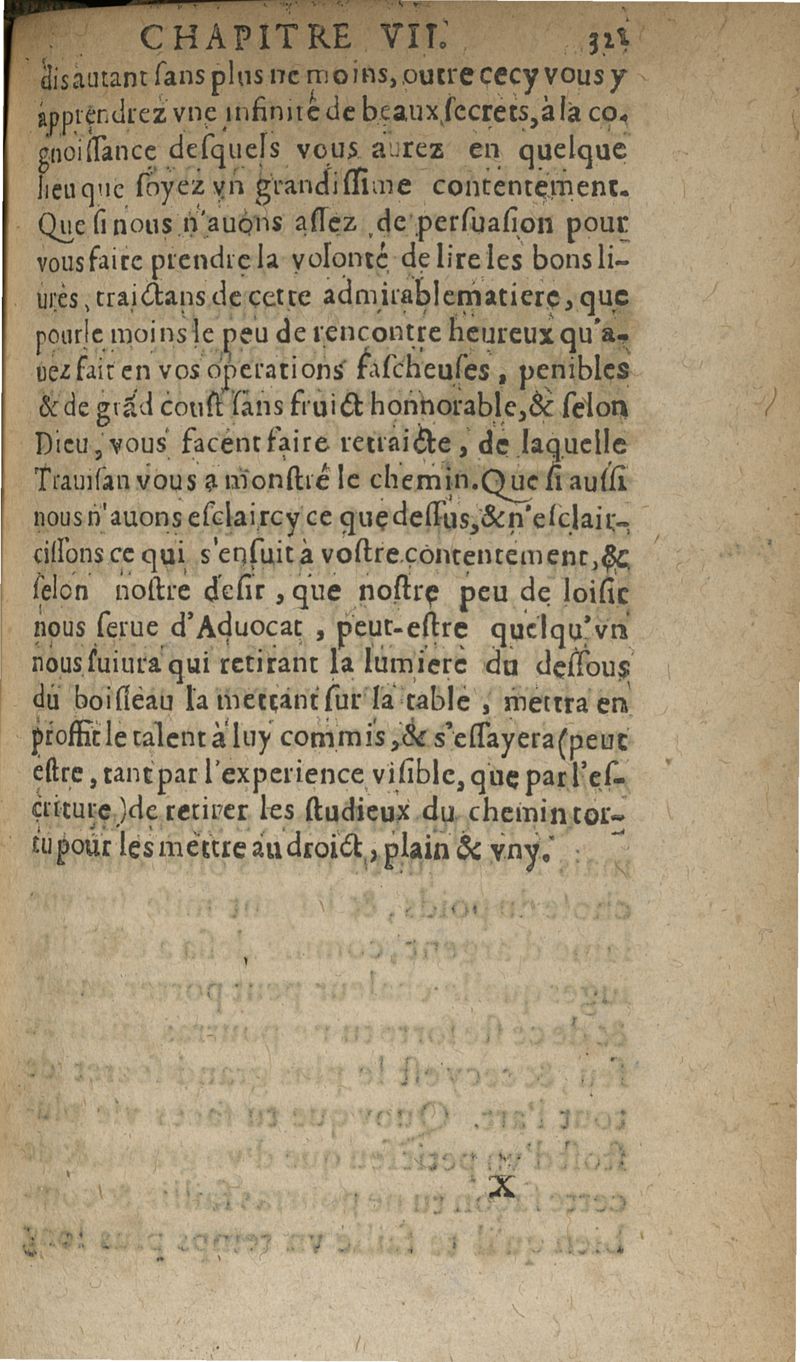 CHAPITRE VII. 321
disautant sans plus ne moins, outre cecy vous y
apprendrez vne infinité de beaux secrets, à la co-
gnoissance desquels vous aurez en quelque
lieu que soyez vn grandissime contentement.
Que si nous n'auons assez de persuasion pour
vous faire prendre la volonté de lire les bons li-
ures, traictans de cette admirable matiere, que
pour le moins le peu de rencontre heureux qu'a-
uez fait en vos operations fascheuses, penibles
& de grãd coust sans fruict honnorable, & selon
Dieu, vous facent faire retraicte, de laquelle
Trauisan vous a monstré le chemin. Que si aussi
nous n'auons esclaircy ce que dessus, & n'esclair-
cissons ce qui s'ensuit à vostre contentement, &
selon nostre desir, que nostre peu de loisir
nous serue d'Aduocat, peut-estre quelqu'vn
nous suiura qui retirant la lumiere du dessous
du boisseau la mettant sur la table, mettra en
proffit le talent à luy commis, & s'essayera (peut
estre, tant par l'experience visible, que par l'es-
criture) de retirer les studieux du chemin tor-
tu pour les mettre au droict, plain & vny.
X